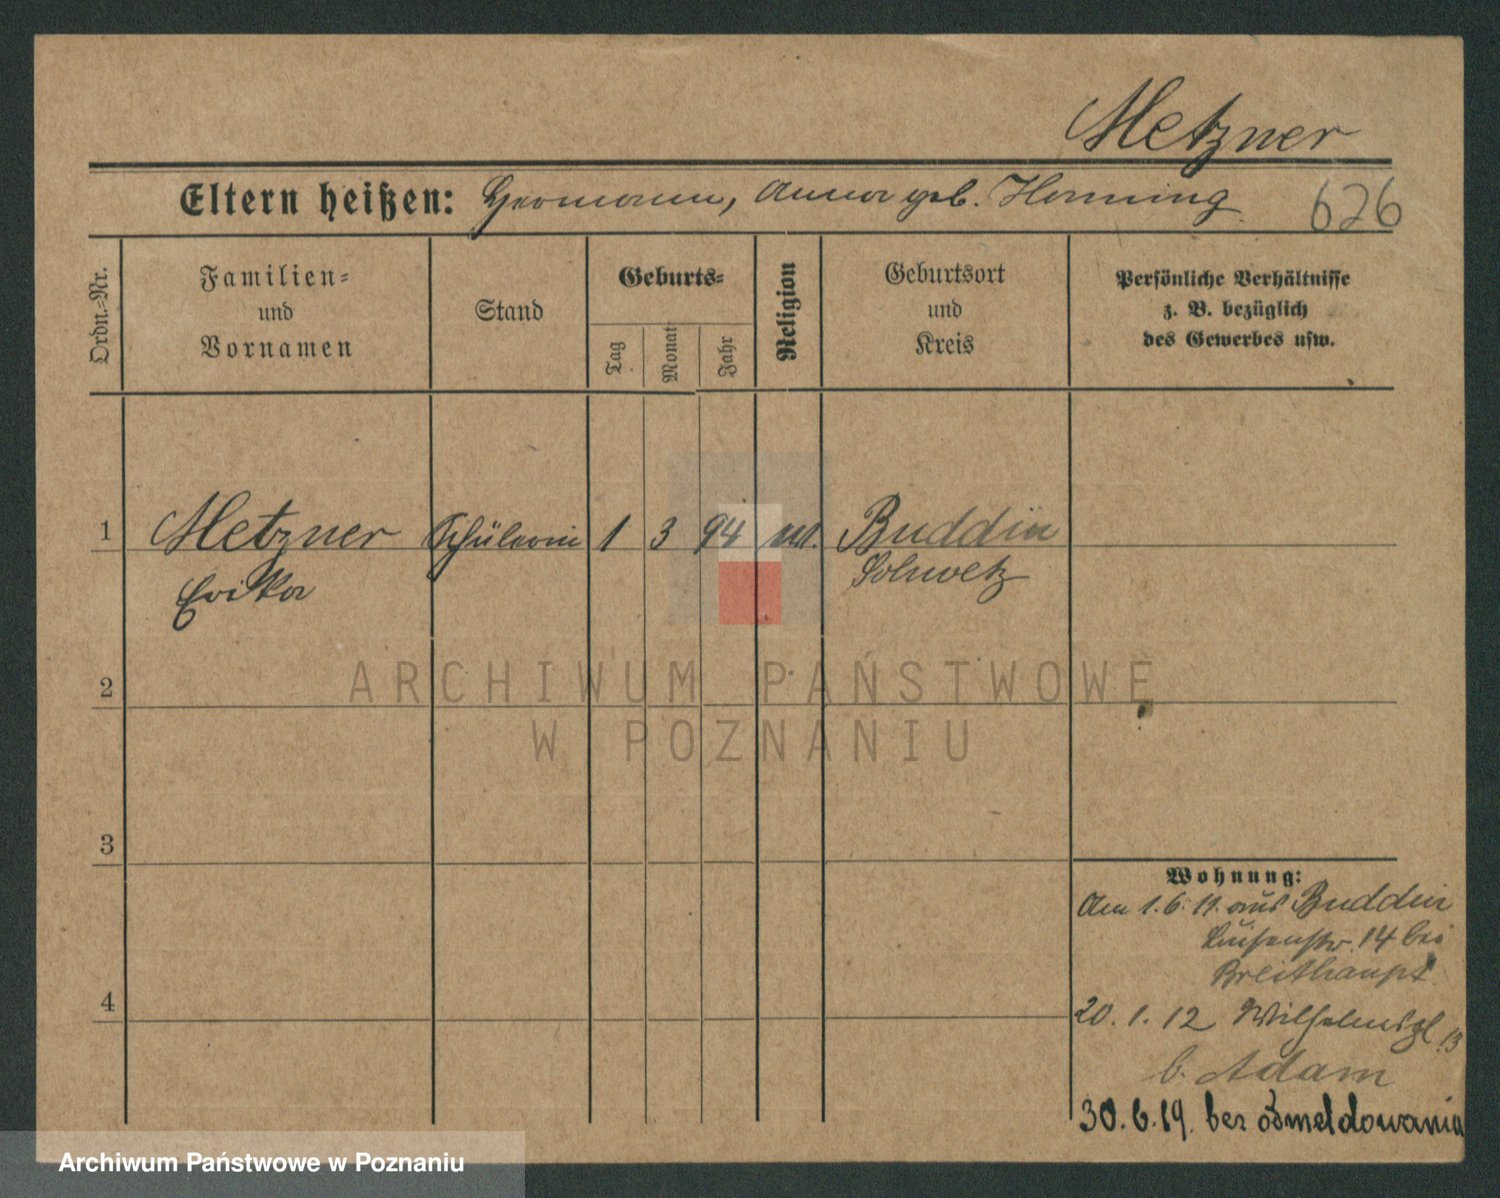 Metzner
Eltern heißen: Hermann, Anna geb. Horning
626
Ordn.-Nr.
Familien-
und
Vornamen
Stand
Geburts-
Tag
Monat
Jahr
Religion
Geburtsort
und
Kreis
Persönliche Verhältnisse
z. B. bezüglich
des Gewerbes usw.
1 Metzner Schülerin 1 3 94 Buddin
Erika Schwetz
2
3
4
Wohnung:
Am 1.6.11. aus Buddin
Luisenstr. 14 bei
Breithaupt.
20.1.12 Wilhelmspl. 13
b. Adam
30.6.19. bez odmeldowania
ARCHIWUM PAŃSTWOWE
W POZNANIU
Archiwum Państwowe w Poznaniu